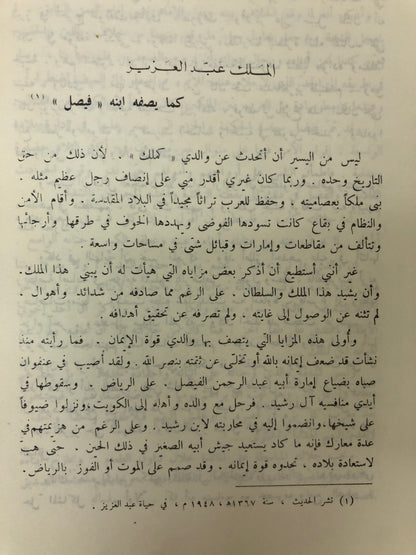 الملك عبد العزيز
كما يصفه ابنه « فيصل » (١)
ليس من اليسير أن أتحدث عن والدي « كملك » . لأن ذلك من حق
التاريخ وحده . وربما كان غيري أقدر مني على إنصاف رجل عظيم مثله .
بنى ملكاً بعصاميته ، وحفظ للعرب تراثاً مجيداً في البلاد المقدسة . وأقام الأمن
والنظام في بقاع كانت تسودها الفوضى ويهددها الخوف في طرقها وأرجائها
وتتألف من مقاطعات وإمارات وقبائل شتى في مساحات واسعة .
غير أنني أستطيع أن أذكر بعض مزاياه التي هيأت له أن يبني هذا الملك.
وأن يشيد هذا الملك والسلطان . على الرغم مما صادفه من شدائد وأهوال .
لم تثنه عن الوصول إلى غايته . ولم تصرفه عن تحقيق أهدافه .
وأولى هذه المزايا التي يتصف بها والدي قوة الإيمان . فما رأيته منذ
نشأت قد ضعف إيمانه بالله أو تخلى عن ثقته بنصر الله . ولقد أصيب في عنفوان
صباه بضياع إمارة أبيه عبد الرحمن الفيصل . على الرياض . وسقوطها في
أيدي منافسيه آل رشيد . فرحل مع والده وأهله إلى الكويت، ونزلوا ضيوفاً
على شيخها، وانضموا إليه في محاربته لابن رشيد . وعلى الرغم من هزيمتهم في
عدة معارك فإنه ما كاد يستعيد جيش أبيه الصغير في ذلك الحين . حتى هب
لاستعادة بلاده ، تحدوه قوة إيمانه . وقد صمم على الموت أو الفوز بالرياض.
(١) نشر الحديث ، سنة ١٣٦٧هـ ، ١٩٤٨ م ، في حياة عبد العزيز .